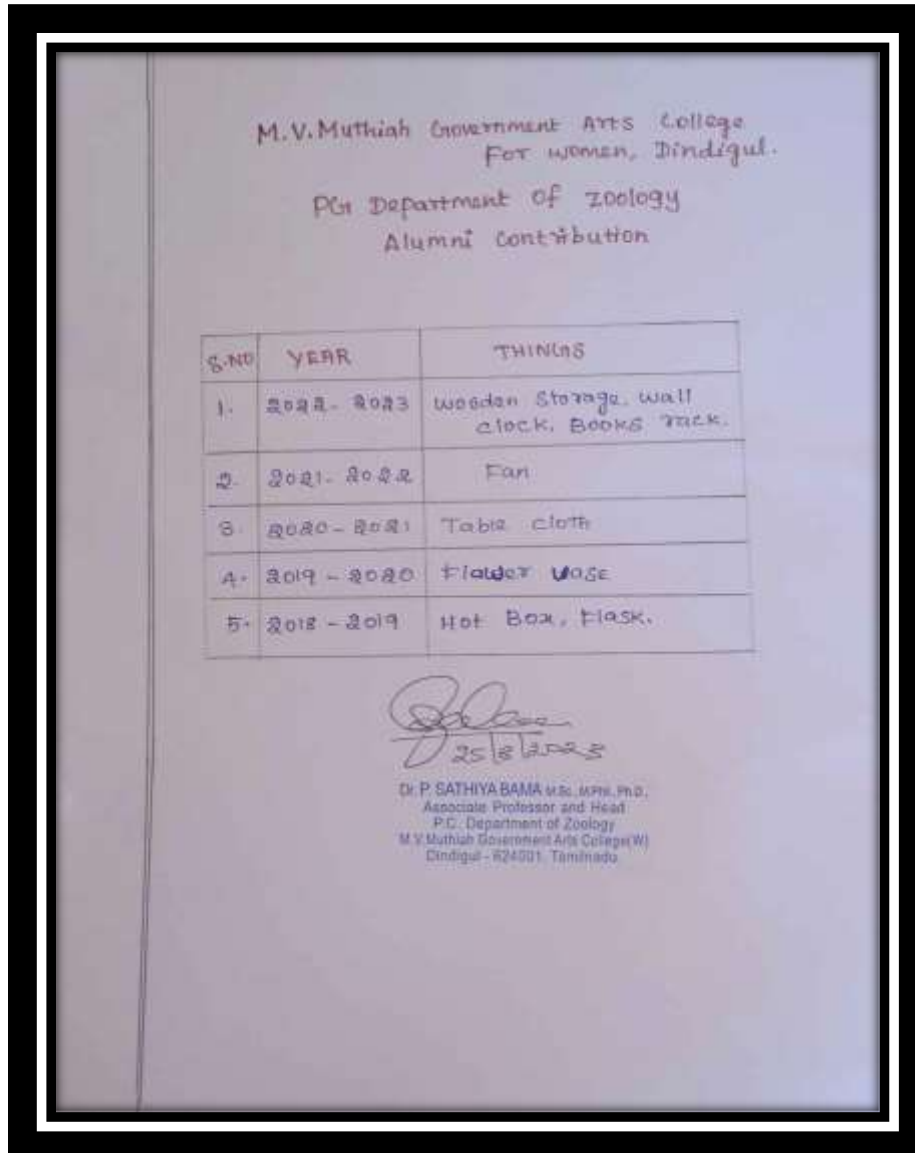 M.V.Muthiah Government Arts College
For women, Dindigul.
PG Department of Zoology
Alumni Contribution
S.NO YEAR THINGS
1. 2022 - 2023 Wooden Storage, Wall
clock, Books rack.
2. 2021 - 2022 Fan
3. 2020 - 2021 Table cloth
4. 2019 - 2020 Flower Vase
5. 2018 - 2019 Hot Box, Flask.
25/8/2023
Dr. P. SATHIYA BAMA M.Sc., M.Phil., Ph.D.,
Associate Professor and Head
P.G. Department of Zoology
M.V.Muthiah Government Arts College(W)
Dindigul - 624001, Tamilnadu